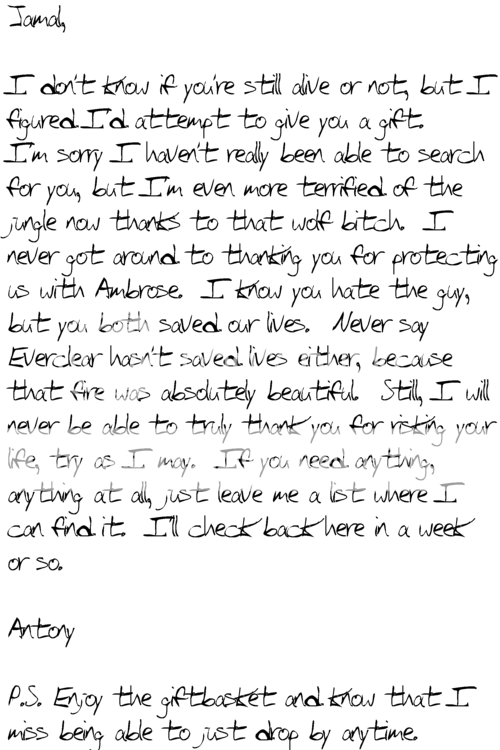 Jamal,
I don't know if you're still alive or not, but I
figured I'd attempt to give you a gift.
I'm sorry I haven't really been able to search
for you, but I'm even more terrified of the
jungle now thanks to that wolf bitch. I
never got around to thanking you for protecting
us with Ambrose. I know you hate the guy,
but you both saved our lives. Never say
Everclear hasn't saved lives either, because
that fire was absolutely beautiful. Still, I will
never be able to truly thank you for risking your
life, try as I may. If you need anything,
anything at all, just leave me a list where I
can find it. I'll check back here in a week
or so.
Antony
P.S. Enjoy the giftbasket and know that I
miss being able to just drop by anytime.